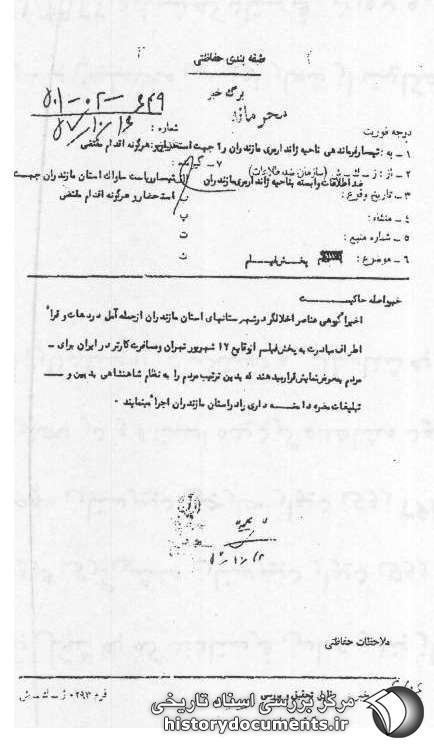 طبقه بندی حفاظتی
برگ خبر
محرمانه
درجه فوریت
شماره :
۱ - به : تیمسار فرماندهی ناحیه ژاندارمری مازندران جهت استحضار و هرگونه اقدام مقتضی
۲ - از : ز - ك - ش (سازمان ضد اطلاعات)
۷ - گیرنده :
ضد اطلاعات وابسته بناحیه ژاندارمری مازندران
تیمسار ریاست ساواك استان مازندران جهت
۳ - تاریخ وقوع :
ب
استحضار و هرگونه اقدام مقتضی
۴ - منشاء :
پ
۵ - شماره منبع :
ت
۶ - موضوع :
پخش فیلم
ث
خبر واصله حاکیست
اخیرا گروهی عناصر اخلالگر در شهرستانهای استان مازندران از جمله آمل در دهات و قراء
اطراف مبادرت به پخش فیلم از وقایع ۱۷ شهریور تهران و مسافرت کارتر در ایران برای -
مردم بمعرض نمایش قرار میدهند که بدین ترتیب مردم را به نظام شاهنشاهی بدبین و
تبلیغات مخرب دامنه داری را در استان مازندران اجراء مینمایند .
ملاحظات حفاظتی
فرم ۰۲۹۳ ژ - ك - ش
مرکز بررسی اسناد تاریخی
historydocuments.ir